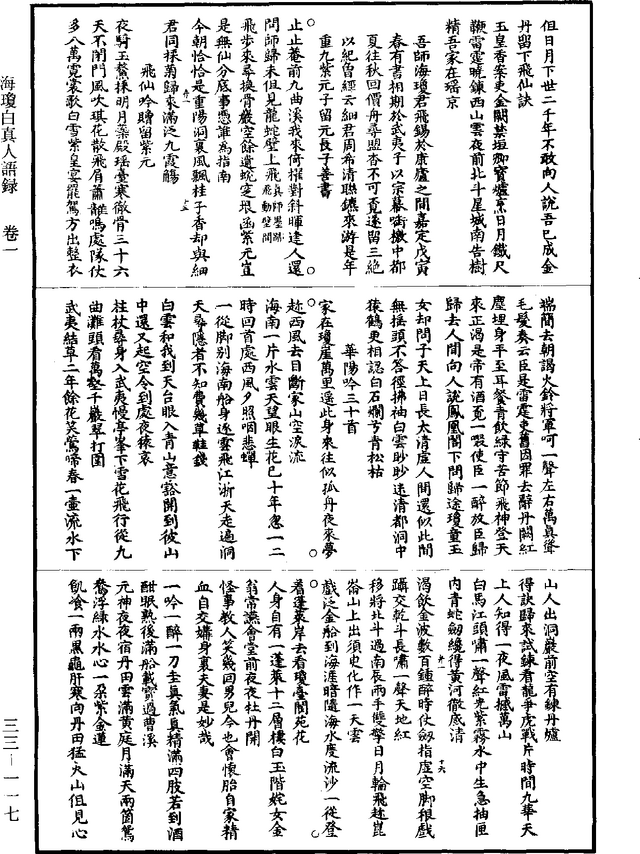 海瓊白真人語録　卷一
三三—一一七
但日月下世二千年不敢向人說吾已成金
丹留下飛仙訣
玉皇香案吏金闕禁垣卿寶爐烹日月鐵尺
鞭雷霆曉鍊西山雲夜前北斗星城南告樹
精吾家在瑤京
吾師海瓊君飛錫於康廬之間嘉定戊寅
春有書相期於武夷予以宗幕
夏往秋回價舟尋盟杳不可覓遂留三絶
以紀曾經云細君周希清聯鑣來游是年
重九紫元子留元長子善書
止止菴前九曲溪我來何指對斜暉逢人還
問師歸未但見龍蛇壁上飛真師墨跡飛動壁間
飛步來尋換骨巖空餘遺蛻垠函紫元豈
是無仙分底事憑誰為指南
今朝恰恰是重陽洞裏風飄桂子香却與細
君同採菊歸來滿泛九霞觴
飛仙吟贈留紫元
夜騎玉鰲採明月蘂殿瑤臺寒徹骨三十六
天不閉門風吹琪花散飛屑簫韶鳴處隊仗
多八萬霓裳歌白雪紫皇宴罷駕方出整衣
端簡去朝謁火鈴將軍呵一聲左右萬真聳
毛髮奏云臣是雷霆吏舊因罪去辭丹闕紅
塵埋身平至耳餐青飲綠守苦節飛神登天
來正渴是帝有酒覓一啜使臣一醉放臣歸
歸去人間向人說鳳凰閣下問歸途瓊童玉
女却問予天上日長太清虛人間還似此間
無搖頭不答徑拂袖白雲眇眇迷清都洞中
猿鶴更相認白石爛兮青松枯
華陽吟三十首
家在瓊崖萬里遥此身來往似孤舟夜來夢
趂西風去目斷家山空淚流
海南一片水雲天望眼生花已十年忽一二
時回首處西風夕照咽悲蟬
一從脚别海南船身逐雲飛江浙天走遍洞
天尋隱者不知費幾草鞋錢
白雲和我到天台眼入青山意豁開到彼山
中還又起空令到處夜猿哀
柱杖尋身入武夷幔亭峯下雪花飛行從九
曲灘頭看萬壑千巖翠打圍
武夷結草二年餘花笑鶯啼春一壷流水下
山人出洞巖前空有鍊丹爐
得訣歸來試鍊看龍爭虎戰片時間九華天
上人知得一夜風雷撼萬山
白馬江頭嘯一聲紅光紫霧水中生急抽匣
内青蛇劒攪得黄河徹底清
渴飲金波數百鍾醉時仗劒指虚空脚根戲
躡交乾斗長嘯一聲天地紅
移將北斗過南辰兩手雙擎日月輪飛趂崑
崙山上出須臾化作一天雲
戲泛金船到海涯暗隨海水度流沙一從登
着蓬萊岸去看瓊臺閬苑花
人身自有一蓬萊十二層樓白玉階姹女金
翁常讌會堂前夜夜牡丹開
怪事教人笑幾回男兒今也會懷胎自家精
血自交媾身裏夫妻是妙哉
一吟一醉一刀圭真氣真精滿四肢若到酒
酣眠熟後滿船載寶過曹溪
元神夜夜宿丹田雲滿黄庭月滿天兩箇鴛
鴦浮緑水水心一朵紫金蓮
飢飡一兩黒龜肝寒向丹田猛火山但見心